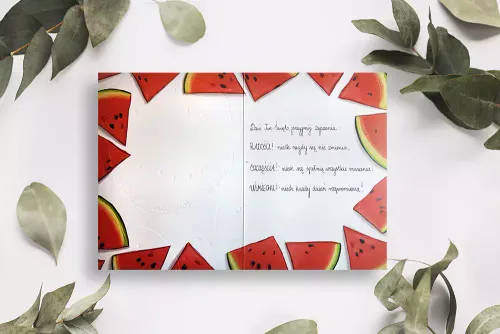 Dziś Twe Święto przyjmij życzenia:
RADOŚCI! niech nigdy się nie zmienia,
SZCZĘŚCIA! niech się spełnią wszystkie marzenia,
UŚMIECHU! niech każdy dzień rozpromienia!